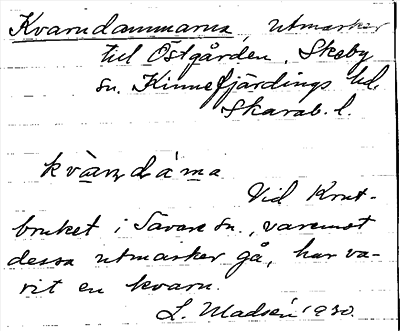 Kvarndammarna, utmarker
till Östgården, Skeby
sn. Kinnefjärdings hd.
Skarab. l.
kvàṇḍá'ma
Vid Krut-
bruket i Sävare sn., varemot
dessa utmarker gå, har va-
rit en kvarn.
L. Madsén 1930.